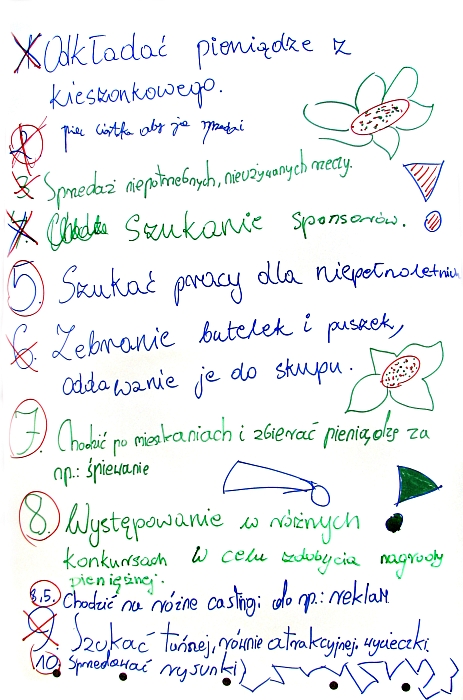 1. Odkładać pieniądze z
kieszonkowego.
2. piec ciastka aby je sprzedać
3. Sprzedaż niepotrzebnych, nieużywanych rzeczy.
4. Szukanie sponsorów.
5. Szukać pracy dla niepełnoletnich
6. Zebranie butelek i puszek,
oddawanie je do skupu.
7. Chodzić po mieszkaniach i zbierać pieniądze za
np.: śpiewanie
8. Występowanie w różnych
konkursach w celu zdobycia nagrody
pieniężnej.
8,5. Chodzić na różne castingi do np.: reklam
9. Szukać tańszej, równie atrakcyjnej wycieczki.
10. Sprzedawać rysunki